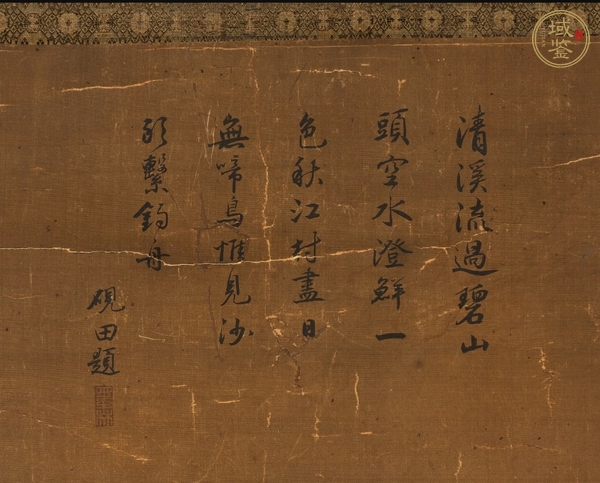 清溪流過碧山
頭空水澄鮮一
色秋江村盡日
無啼鳥惟見沙
頭繫釣舟
硯田題
域鉴